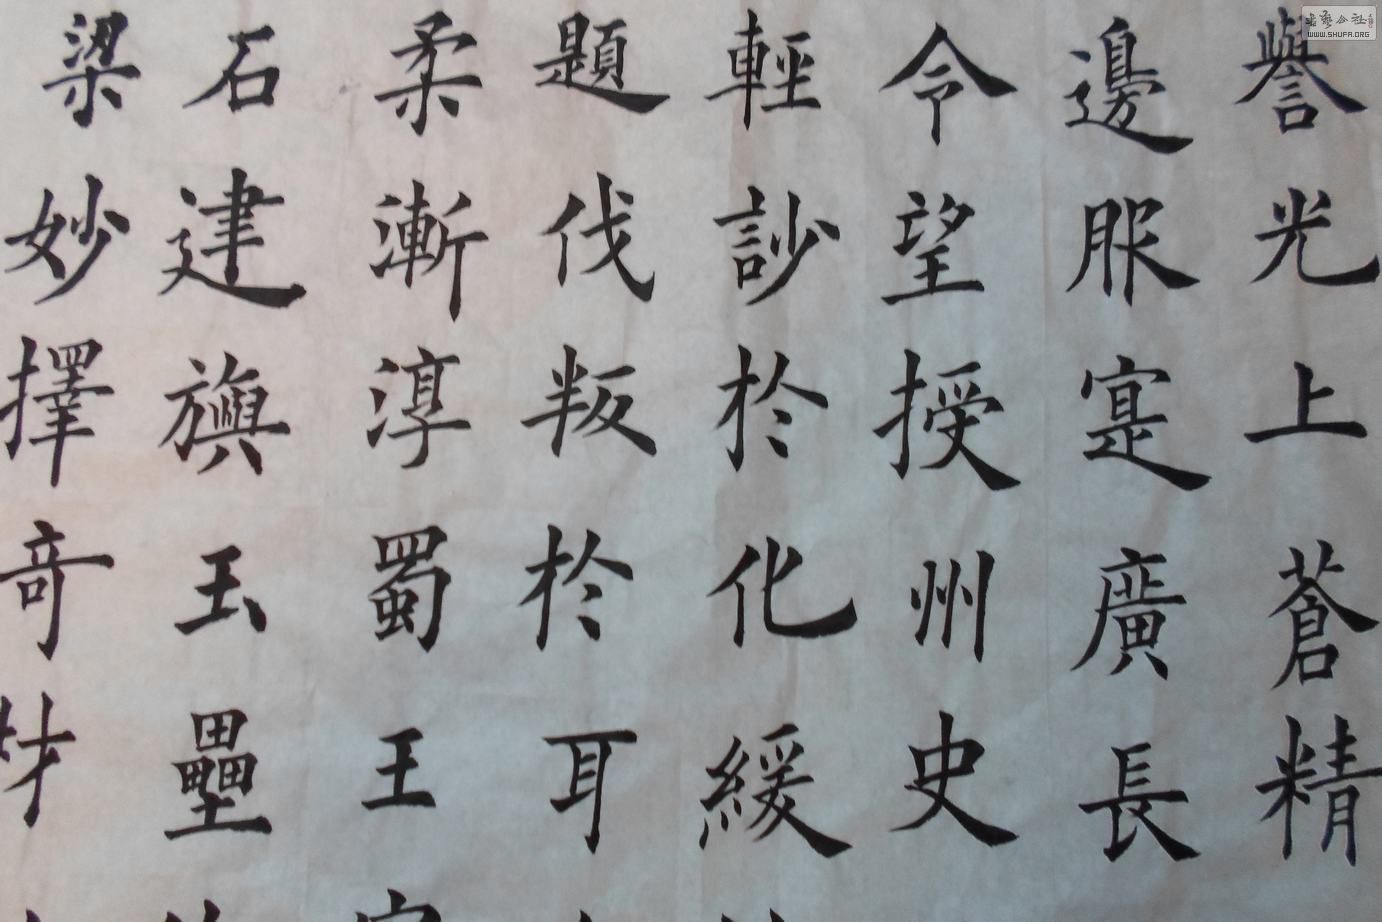 譽光上蒼精
邊服寔廣長
令望授州史
輕訬於化緩
題伐叛於耳
柔漸淳蜀王
石建旟玉壘
梁妙擇奇材
書藝公社
WWW.SHUFA.ORG